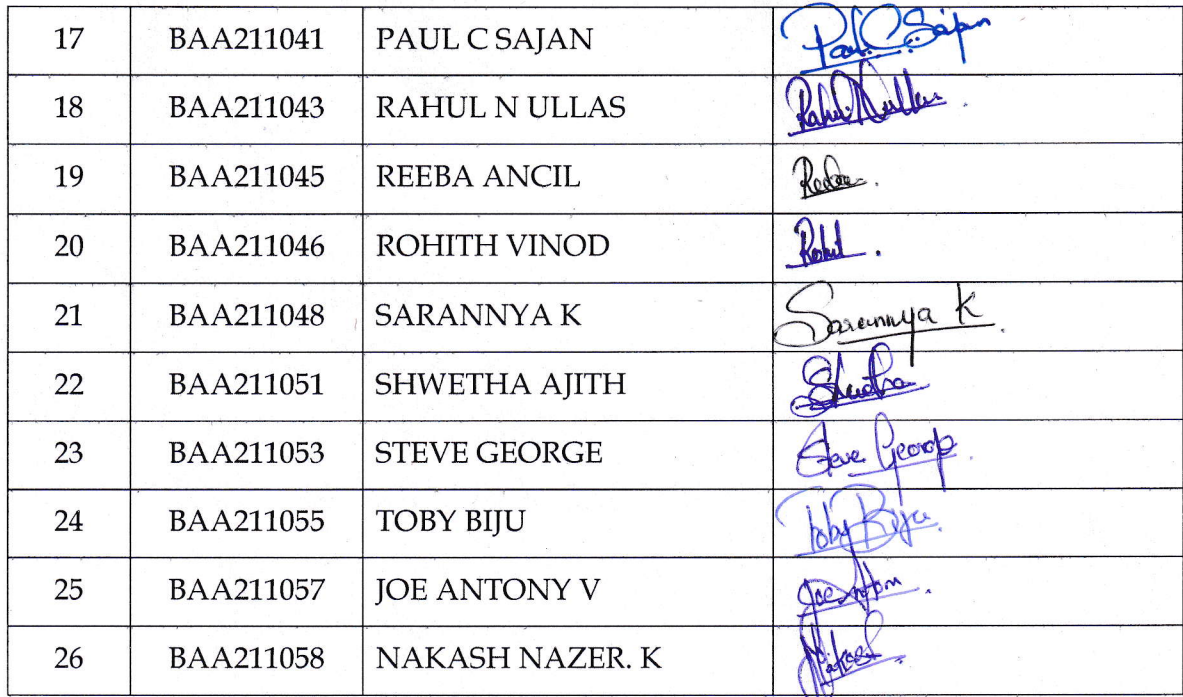 17 BAA211041 PAUL C SAJAN Paul C Sajan
18 BAA211043 RAHUL N ULLAS Rahul N Ullas
19 BAA211045 REEBA ANCIL Reeba.
20 BAA211046 ROHITH VINOD
21 BAA211048 SARANNYA K Sarannya K
22 BAA211051 SHWETHA AJITH
23 BAA211053 STEVE GEORGE Steve George
24 BAA211055 TOBY BIJU Toby Biju
25 BAA211057 JOE ANTONY V
26 BAA211058 NAKASH NAZER. K Nakash